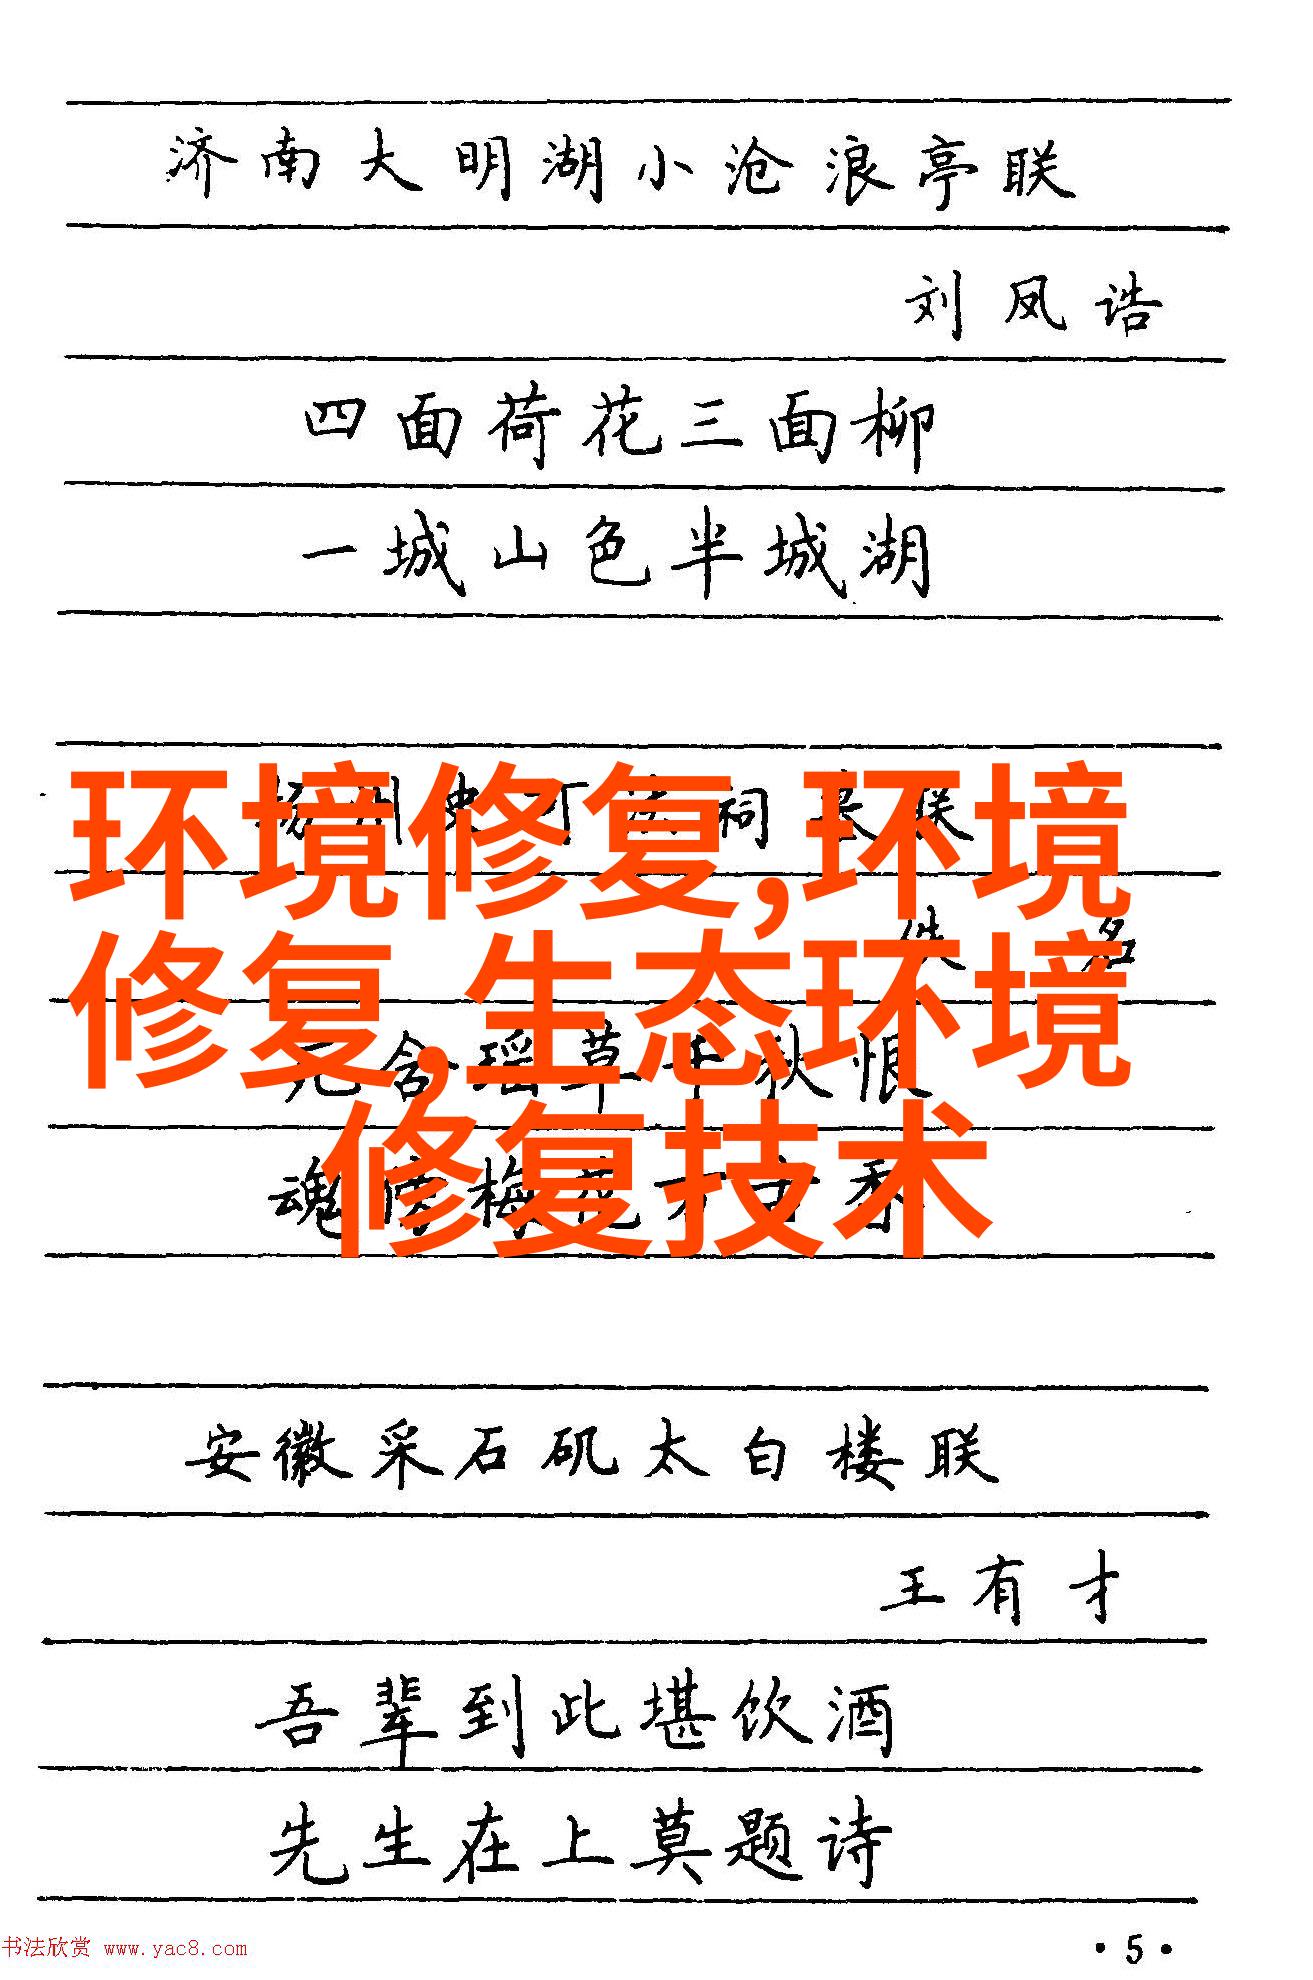 济南大明湖小沧浪亭联
刘凤诰
四面荷花三面柳
一城山色半城湖
扬州史可法祠墓联
环境修复,环境
佚名
修复,生态环境
含瑶草千秋恨
修复技术
魂傍梅花万古香
安徽采石矶太白楼联
王有才
吾辈到此堪饮酒
先生在上莫题诗
书法欣赏 www.yac8.com
·5·